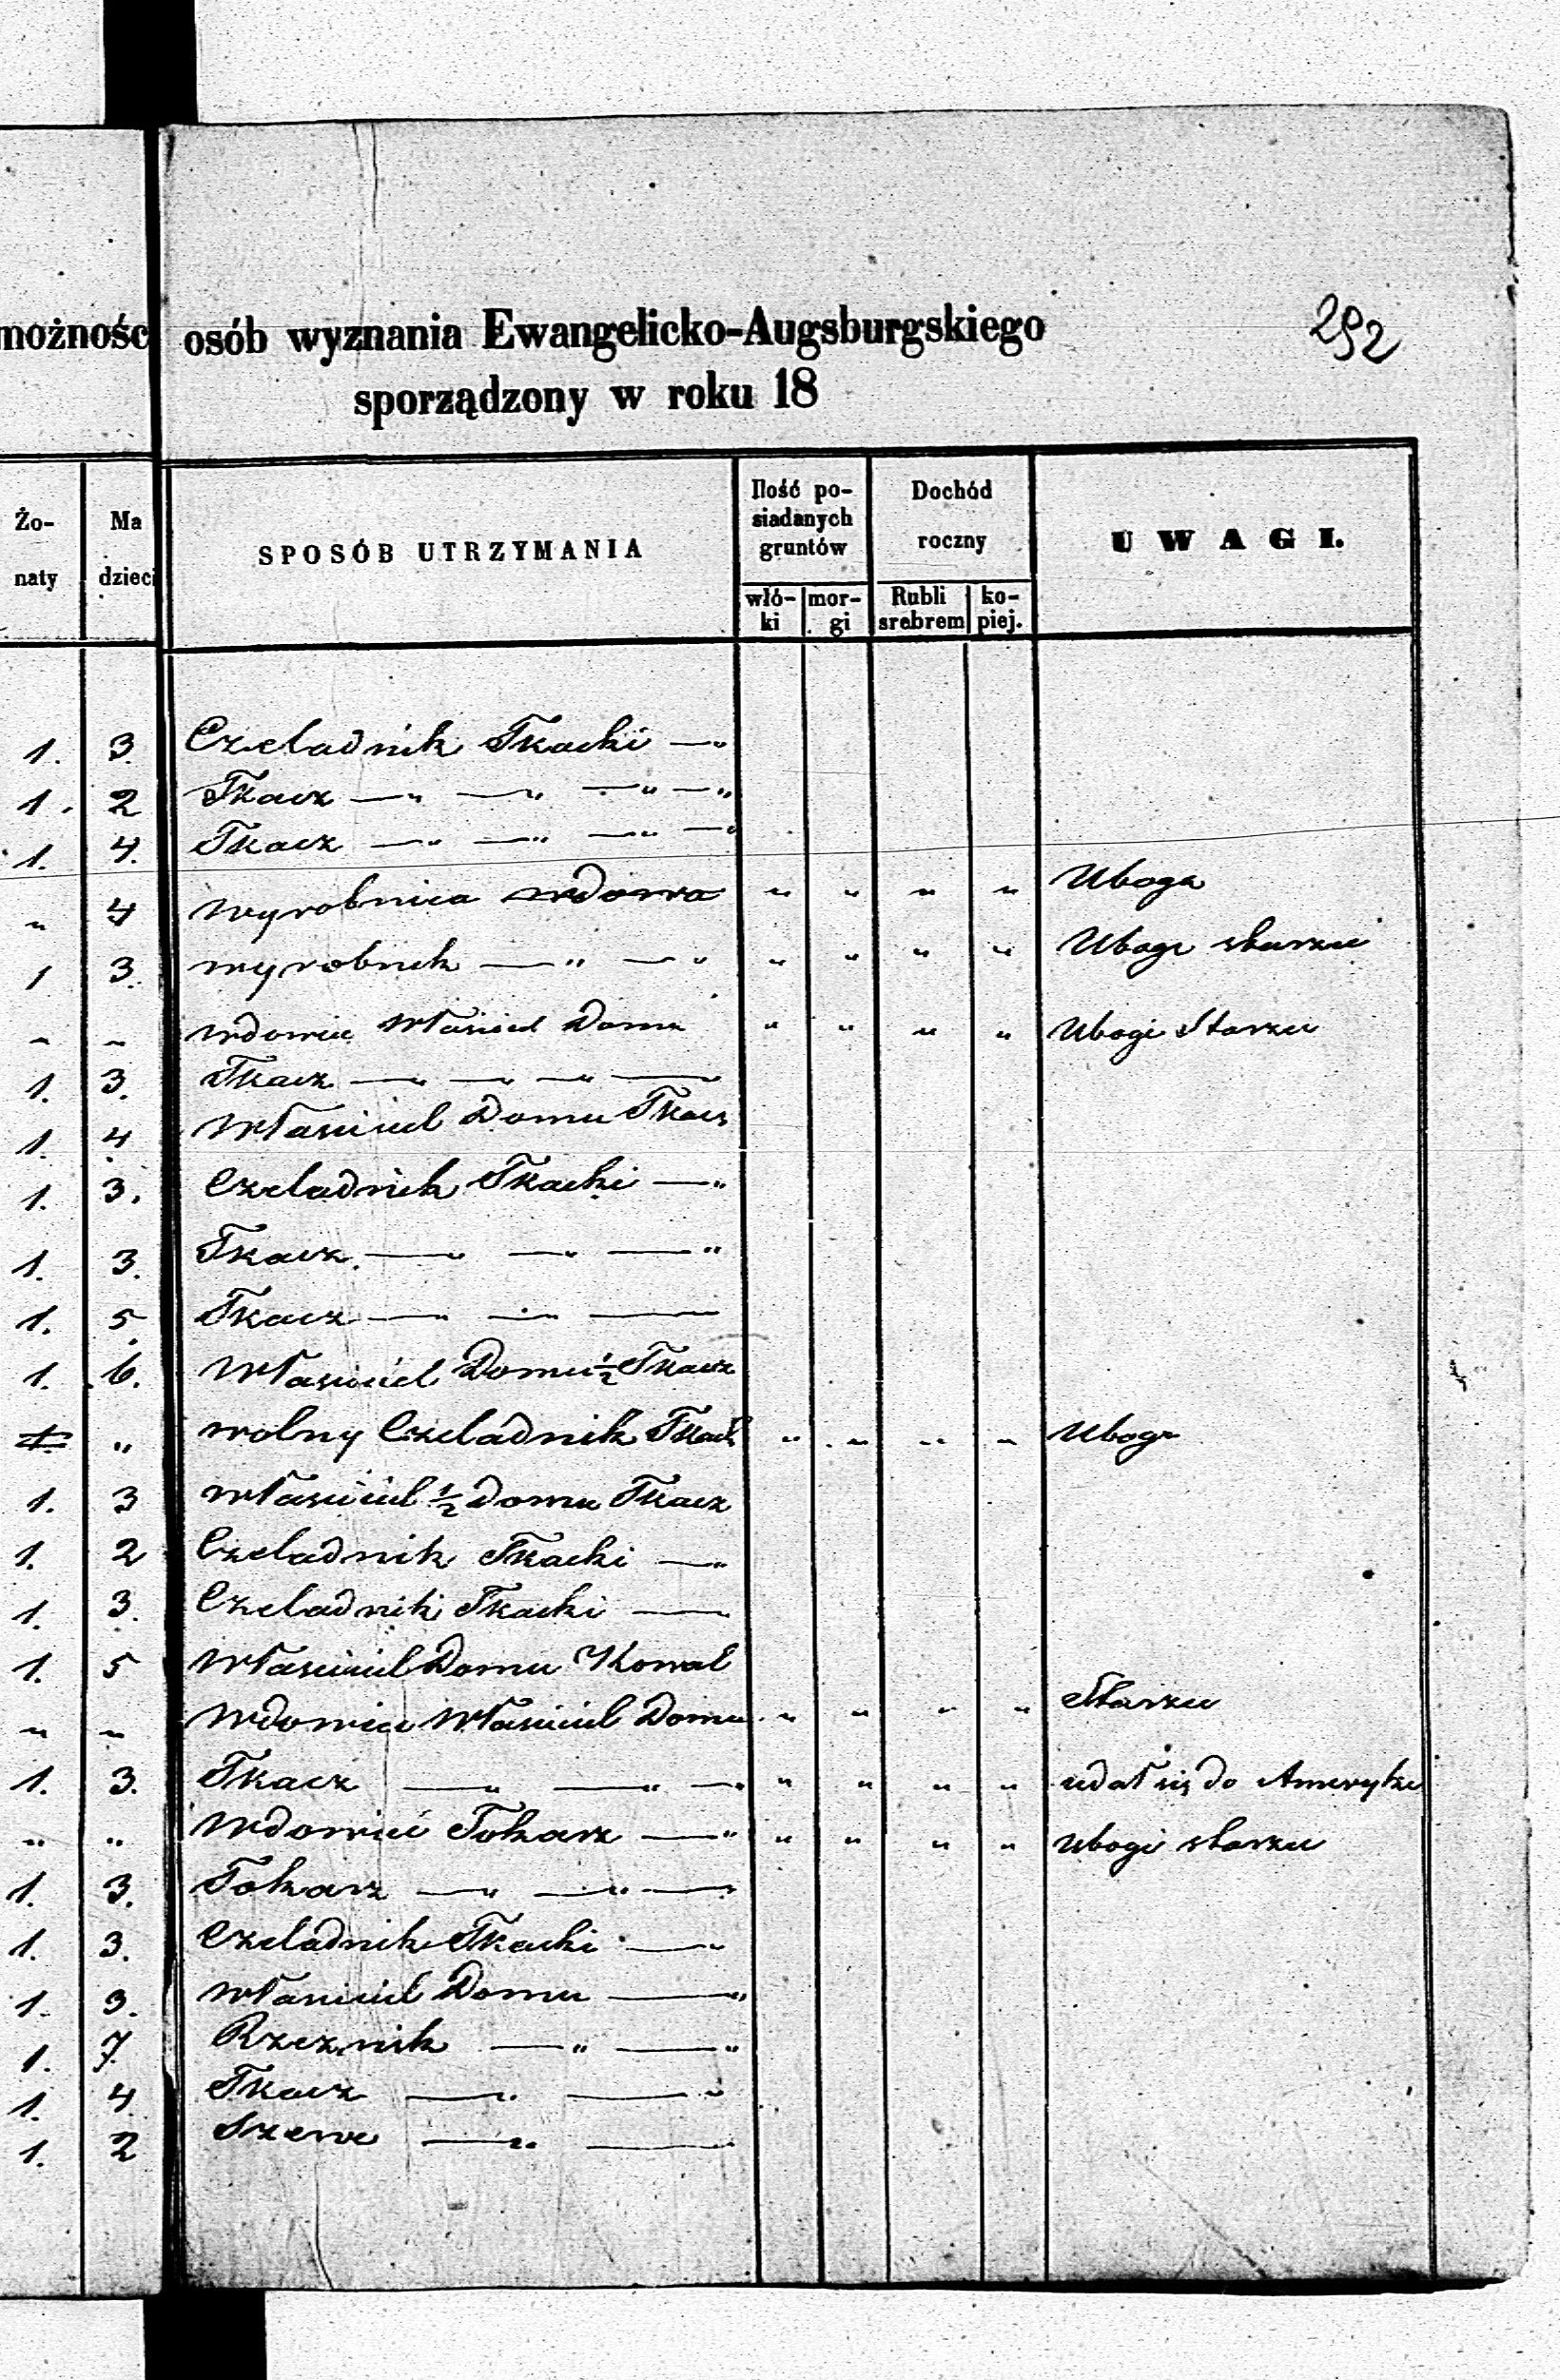 292
możnośc osób wyznania Ewangelicko-Augsburgskiego
sporządzony w roku 18
Żo-
naty
Ma
dzieci
SPOSÓB UTRZYMANIA
Ilość po-
siadanych
gruntów
włó-
ki
mor-
gi
Dochód
roczny
Rubli
srebrem
ko-
piej.
UWAGI.
1. 3. Czeladnik Tkacki —„
1. 2 Tkacz —„ —„ —„ —„
1. 4. Tkacz —„ —„ —„ —„
„ 4 wyrobnica wdowa „ „ „ „ Uboga
1 3. wyrobnik —„ —„ „ „ „ „ Ubogi starzec
„ „ wdowiec Właściciel Domu „ „ „ „ Ubogi Starzec
1. 3. Tkacz —„ —„ —„ —
1. 4 Właściciel Domu Tkacz
1. 3. Czeladnik Tkacki —„
1. 3. Tkacz. —„ —„ —„
1. 5. Tkacz —„ —„ —
1. 6. Właściciel Domu ½ Tkacz
1 „ wolny Czeladnik Tkack „ „ „ „ Ubogi
1. 3 właściciel ½ Domu Tkacz
1. 2 Czeladnik Tkacki —„
1. 3. Czeladnik Tkacki —
1. 5 Właściciel Domu Kowal
„ „ Wdowiec Właściciel Domu „ „ „ „ Starzec
1. 3. Tkacz —„ —„ —„ „ „ „ „ udał się do Ameryki
„ „ Wdowiec Tokarz —„ „ „ „ „ ubogi starzec
1. 3. Tokarz —„ —„ —
1. 3. Czeladnik Tkacki —„
1. 3. właściciel Domu —„
1. 7. Rzeznik —„ —„
1. 4 Tkacz —„ —„
1. 2 Szewc —„ —